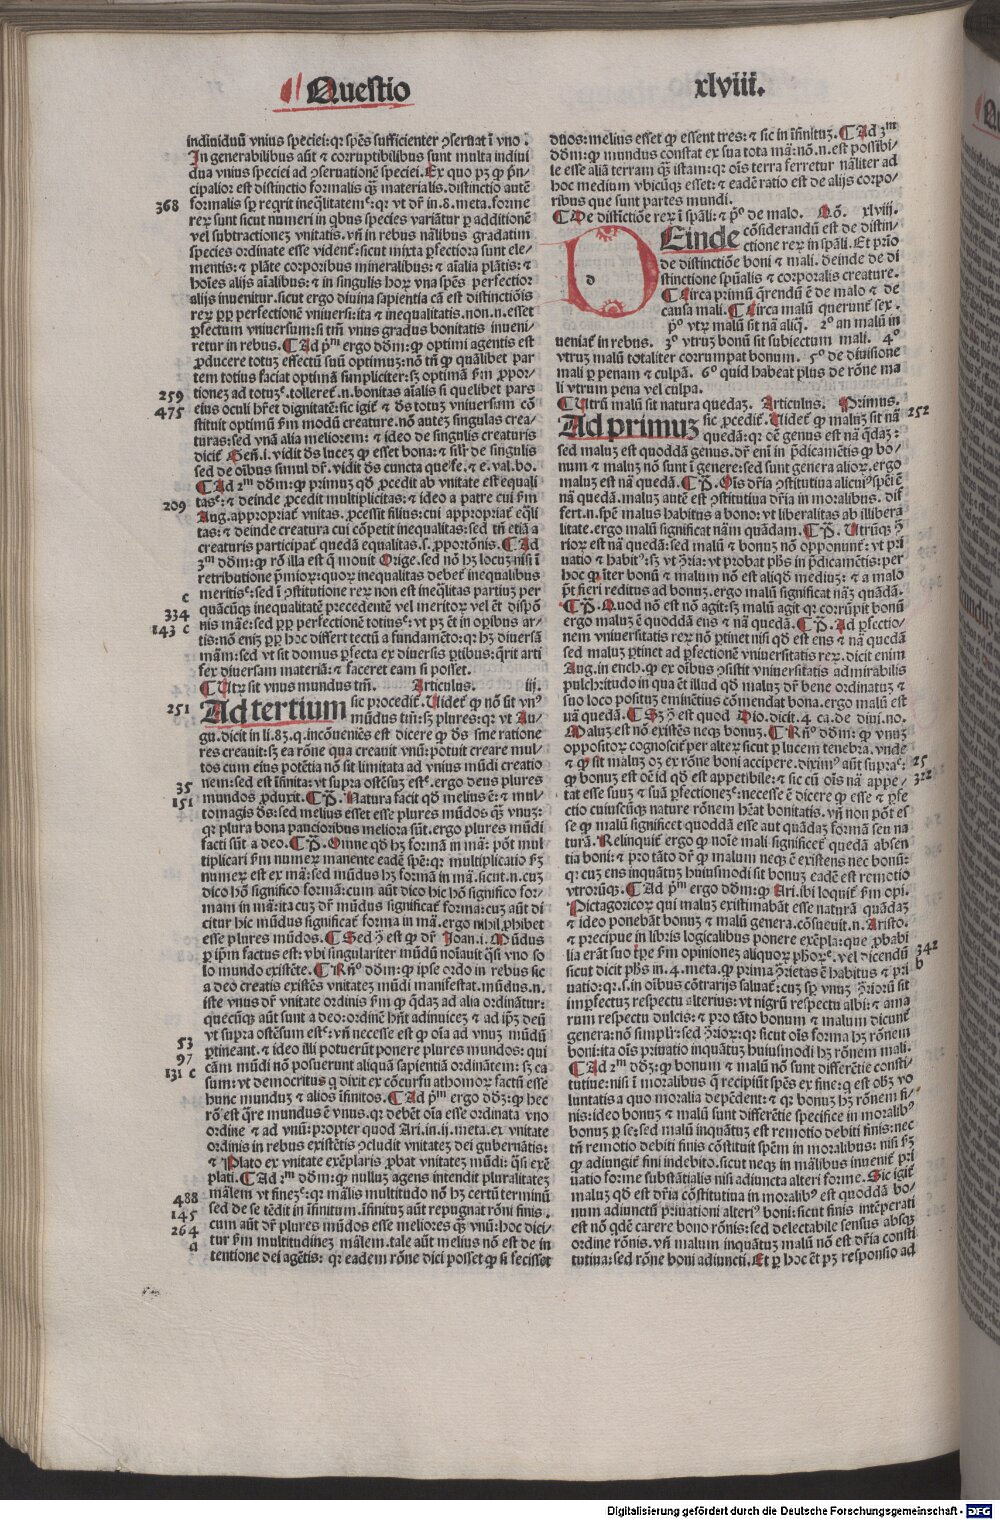 Questio
xlviii.
indiuiduũ vnius speciei: qꝛ spẽs sufficienter ꝯseruat̃ ĩ vno.
In generabilibus aũt ⁊ corruptibilibus sunt multa indiui
dua vnius speciei ad ꝯseruationẽ speciei. Ex quo pꝫ ꝙ pꝛĩ-
cipalior est distinctio formalis qꝫ̃ materialis. distinctio autẽ
368
formalis sꝑ reqrit ineq̃litatem: qꝛ vt dꝛ̃ in .8. meta. forme
reꝝ sunt sicut numeri in qbus species variãtur ꝑ additionẽ
vel subtractionez vnitatis. vñ in rebus nãlibus gradatim
species ordinate esse vident̃: sicut mixta ꝑfectiora sunt ele-
mentis: ⁊ plãte corporibus mineralibus: ⁊ aĩalia plãtis: ⁊
hoĩes alijs aĩalibus: ⁊ in singulis hoꝝ vna spẽs perfectior
alijs inuenitur. sicut ergo diuina sapientia cã est distinctiõis
reꝝ ꝓꝑ perfectionẽ vniuersi: ita ⁊ inequalitatis. non .n. esset
ꝑfectum vniuersum: si tm̃ vnius gradus bonitatis inueni/
retur in rebus. ¶ Ad pᵐ ergo dõm: ꝙ optimi agentis est
ꝓducere totuz effectũ suũ optimuz: nõ tñ ꝙ quãlibet par
tem totius faciat optimã simpliciter: sꝫ optimã ẜm ꝓpor-
259
tionez ad totuz: tolleret̃ .n. bonitas aĩalis si quelibet pars
475
eius oculi hr̃et dignitatẽ: sic igit̃ ⁊ ds̃ totuz vniuersum cõ
stituit optimũ ẜm modũ creature. nõ autez singulas crea-
turas: sed vnã alia meliorem: ⁊ ideo de singulis creaturis
dicit̃ Geñ. i. vidit ds̃ lucez ꝙ esset bona: ⁊ sil̃r de singulis
sed de oĩbus simul dꝛ̃. vidit ds̃ cuncta que fe. ⁊ e. val. bo.
¶ Ad 2ᵐ dõm: ꝙ primuz qđ ꝓcedit ab vnitate est equali
209
tas: ⁊ deinde ꝓcedit multiplicitas: ⁊ ideo a patre cui ẜm
Aug. appropriat̃ vnitas. ꝓcessit filius: cui appropriat̃ eq̃li
tas: ⁊ deinde creatura cui cõpetit inequalitas: sed tñ etiã a
creaturis participat̃ quedã equalitas .s. ꝓportõnis. ¶ Ad
3ᵐ dõm: ꝙ rõ illa est q̃ mouit Orige. sed nõ hꝫ locuz nisi ĩ
retributione pmioꝝ: quoꝝ inequalitas debet̃ inequalibus
c
meritis: sed ĩ ꝯstitutione reꝝ non est ineq̃litas partiuz per
334
quãcũqꝫ inequalitatẽ precedentẽ vel meritoꝝ vel ẽt dispõ
143 c
nis mãe: sed ꝓꝑ perfectionẽ totius: vt pꝫ ẽt in oꝑibus ar-
tis: nõ eniz ꝓꝑ hoc differt tectũ a fundamẽto: qꝛ hꝫ diuersã
mãm: sed vt sit domus ꝑfecta ex diuersis ꝑtibus: q̃rit arti
fex diuersam materiã: ⁊ faceret eam si posset.
¶ Utꝝ sit vnus mundus tm̃. Articulus. iij.
251
Ad tertium sic procedit̃. Uidet̃ ꝙ nõ sit vnꝰ
mũdus tm̃: sꝫ plures: qꝛ vt Au-
gu. dicit in li. 83. q. incõueniẽs est dicere ꝙ ds̃ sine ratione
res creauit: sꝫ ea rõne qua creauit vnũ: potuit creare mul-
tos cum eius potẽtia nõ sit limitata ad vnius mũdi creatio
35
nem: sed est ĩfinita: vt supra ostẽsuz est. ergo deus plures
151
mundos ꝓduxit. ¶ P̃. Natura facit qđ melius ẽ: ⁊ mul-
tomagis ds̃: sed melius esset esse plures mũdos qꝫ̃ vnuz:
qꝛ plura bona paucioribus meliora sũt. ergo plures mũdi
facti sũt a deo. ¶ P̃. Omne qđ hꝫ formã in mã: põt mul
tiplicari ẜm numeꝝ manente eadẽ spẽ: qꝛ multiplicatio ẜm
numeꝝ est ex mã: sed mũdus hꝫ formã in mã. sicut .n. cuz
dico hõ significo formã: cum aũt dico hic hõ significo for-
mam in mã: ita cuz dꝛ̃ mũdus significat̃ forma: cuz aũt di
citur hic mũdus significat̃ forma in mã. ergo nihil ꝓhibet
esse plures mũdos. ¶ Sed ꝯ est qꝫ dꝛ̃ Joan. i. Mũdus
ꝑ ip̃m factus est: vbi singulariter mũdũ noĩauit q̃si vno so
lo mundo existẽte. ¶ Rñ° dõm: ꝙ ipse ordo in rebus sic
a deo creatis existẽs vnitatez mũdi manifestat. mũdus .n.
iste vnus dꝛ̃ vnitate ordinis ẜm ꝙ q̃daz ad alia ordinãtur:
quecũqꝫ aũt sunt a deo: ordinẽ hñt adinuicẽ ⁊ ad ip̃z deũ
vt supra ostẽsum est: vñ necesse est ꝙ oĩa ad vnuz mũdũ
53
ꝑtineant. ⁊ ideo illi potuerũt ponere plures mundos: qui
97
cãm mũdi nõ posuerunt aliquã sapientiã ordinãtem: sꝫ ca
131 c
sum: vt democritus q dixit ex cõcursu athomoꝝ factũ esse
hunc munduz ⁊ alios ĩfinitos. ¶ Ad pᵐ ergo dõz: ꝙ hec
rõ est q̃re mundus ẽ vnus. qꝛ debẽt oĩa esse ordinata vno
ordine ⁊ ad vnũ: propter quod Ari. in .ij. meta. ex vnitate
ordinis in rebus existẽtis ꝯcludit vnitatez dei gubernãtis:
⁊ Plato ex vnitate exẽplaris ꝓbat vnitatez mũdi: q̃si exẽ
plati. ¶ Ad 2ᵐ dõm: ꝙ nulluz agens intendit pluralitatez
488
mãlem vt finez: qꝛ mãlis multitudo nõ hꝫ certũ terminũ
145
sed de se tẽdit in ĩfinitum. ĩfinituz aũt repugnat rõni finis.
264
cum aũt dꝛ̃ plures mũdos esse meliores qꝫ̃ vnũ: hoc dici-
a
tur ẜm multitudinez mãlem. tale aũt melius nõ est de in
tentione dei agẽtis: qꝛ eadem rõne dici posset ꝙ si fecisset
duos: melius esset ꝙ essent tres: ⁊ sic in ĩfinituz. ¶ Ad 3ᵐ
dõm: ꝙ mundus constat ex sua tota mã: nõ .n. est possibi-
le esse aliã terram qꝫ̃ istam: qꝛ oĩs terra ferretur nãliter ad
hoc medium vbicũqꝫ esset: ⁊ eadẽ ratio est de alijs corpo-
ribus que sunt partes mundi.
¶ De distĩctiõe reꝝ ĩ sp̃ali: ⁊ p° de malo. Qõ. xlviij.
d
Deinde cõsiderandũ est de distin-
ctione reꝝ in sp̃ali. Et prĩo
de distinctiõe boni ⁊ mali. deinde de di
stinctione spũalis ⁊ corporalis creature.
¶ Circa primũ q̃rendũ ẽ de malo ⁊ de
causa mali. ¶ Circa malũ querunt̃ sex.
p° vtꝝ malũ sit nã aliq̃. 2° an malũ in
ueniat̃ in rebus. 3° vtruz bonũ sit subiectum mali. 4°
vtruz malũ totaliter corrumpat bonum. 5° de diuisione
mali per penam ⁊ culpã. 6° quid habeat plus de rõne ma
li vtrum pena vel culpa.
¶ Utrũ malũ sit natura quedaz. Articulus. Primus.
252
Ad primuz sic ꝓcedit̃. Uidet̃ ꝙ maluz sit nã
quedã: qꝛ oẽ genus est nã q̃daz:
sed maluz est quoddã genus. dꝛ̃ enĩ in p̃dicamẽtis ꝙ bo-
num ⁊ maluz nõ sunt ĩ genere: sed sunt genera alioꝝ. ergo
maluz est nã quedã. ¶ P̃. Oĩs dr̃ia ꝯstitutiua alicuiꝰ spẽi ẽ
nã quedã. maluz autẽ est ꝯstitutiua dr̃ia in moralibus. dif
fert .n. spẽ malus habitus a bono: vt liberalitas ab illibera
litate. ergo malũ significat nãm quãdam. ¶ P̃. Utrũqꝫ ꝯ
rioꝝ est nã quedã: sed malũ ⁊ bonuz nõ opponunt̃: vt pri
uatio ⁊ habitꝰ: sꝫ vt ꝯria: vt probat phs̃ in p̃dicamẽtis: per
hoc ꝙ ĩter bonũ ⁊ malum nõ est aliqđ mediuz: ⁊ a malo
p̃t fieri reditus ad bonuz. ergo malũ significat nãz quãdã.
¶ P̃. Quod nõ est nõ agit: sꝫ malũ agit qꝛ corrũpit bonũ
ergo maluz ẽ quoddã ens ⁊ nã quedã. ¶ P̃. Ad ꝑfectio-
nem vniuersitatis reꝝ nõ ꝑtinet nisi qđ est ens ⁊ nã quedã
sed maluz ꝑtinet ad ꝑfectionẽ vniuersitatis reꝝ. dicit enim
Aug. in ench. ꝙ ex oĩbus ꝯsistit vniuersitatis admirabilis
pulchritudo in qua ẽt illud qđ maluz dꝛ̃ bene ordinatuz ⁊
suo loco posituz eminẽtius cõmendat bona. ergo malũ est
nã quedã. ¶ Sꝫ ꝯ est quod Dio. dicit .4. ca. de diui. no.
Maluz est nõ existẽs neqꝫ bonuz. ¶ Rñ° dõm: ꝙ vnuz
oppositoꝝ cognoscit̃ per alteꝝ sicut ꝑ lucem tenebra. vnde
25
⁊ qđ sit maluz oꝫ ex rõne boni accipere. diximꝰ aũt supra:
322
ꝙ bonuz est oẽ id qđ est appetibile: ⁊ sic cũ oĩs nã appe-
tat esse suuz ⁊ suã ꝑfectionez: necesse ẽ dicere ꝙ esse ⁊ ꝑfe
ctio cuiuscũqꝫ nature rõnem hẽat bonitatis. vñ non põt es
se ꝙ malũ significet quoddã esse aut quãdaz formã seu na
turã. Relinquit̃ ergo ꝙ noĩe mali significet̃ quedã absen
tia boni: ⁊ pro tãto dꝛ̃ ꝙ malum neqꝫ ẽ existens nec bonũ:
qꝛ cuz ens inquãtuz huiusmodi sit bonuz eadẽ est remotio
vtrorũqꝫ. ¶ Ad pᵐ ergo dõm: ꝙ Ari. ibi loquit̃ ẜm opi.
Pictagoricoꝝ qui maluz existimabãt esse naturã quãdaz
⁊ ideo ponebãt bonuz ⁊ malũ genera. cõsueuit .n. Aristo.
⁊ precipue in libris logicalibus ponere exẽpla: que ꝓbabi
342
lia erãt suo tp̃e ẜm opinionez aliquoꝝ phoꝝ. vel dicendũ
b
sicut dicit phs̃ in .4. meta. ꝙ prima ꝯrietas ẽ habitus ⁊ pri
uatio: qꝛ .s. in oĩbus cõtrarijs saluat̃: cuz sꝑ vnuz ꝯrioꝝ sit
imꝑfectuz respectu alterius: vt nigrũ respectu albi: ⁊ ama
rum respectu dulcis: ⁊ pro tãto bonum ⁊ malum dicunt̃
genera: nõ simplr̃: sed ꝯrioꝝ: qꝛ sicut oĩs forma hꝫ rõnem
boni: ita oĩs priuatio inquãtuz huiusmodi hꝫ rõnem mali.
¶ Ad 2ᵐ dõz: ꝙ bonum ⁊ malũ nõ sunt differẽtie consti-
tutiue: nisi ĩ moralibus q̃ recipiũt spẽs ex fine: q̃ est obꝫ vo
luntatis a quo moralia depẽdent: ⁊ qꝛ bonuz hꝫ rõnem fi-
nis: ideo bonuz ⁊ malũ sunt differẽtie specifice in moralibꝰ
bonuz ꝑ se: sed malũ inquãtuz est remotio debiti finis: nec
tñ remotio debiti finis cõstituit spẽm in moralibus: nisi ẜm
ꝙ adiungit̃ fini indebito. sicut neqꝫ in mãlibus inuenit̃ pri
uatio forme substãtialis nisi adiuncta alteri forme. Sic igit̃
maluz qđ est dr̃ia cõstitutiua in moralibꝰ est quoddã bo-
num adiunctũ priuationi alteriꝰ boni: sicut finis intẽperati
est nõ qđẽ carere bono rõnis: sed delectabile sensus absqꝫ
ordine rõnis. vñ malum inquãtuz malũ nõ est dr̃ia consti
tutiua: sed rõne boni adiuncti. Et ꝑ hoc ẽt pꝫ responsio ad
Digitalisierung gefördert durch die Deutsche Forschungsgemeinschaft - DFG